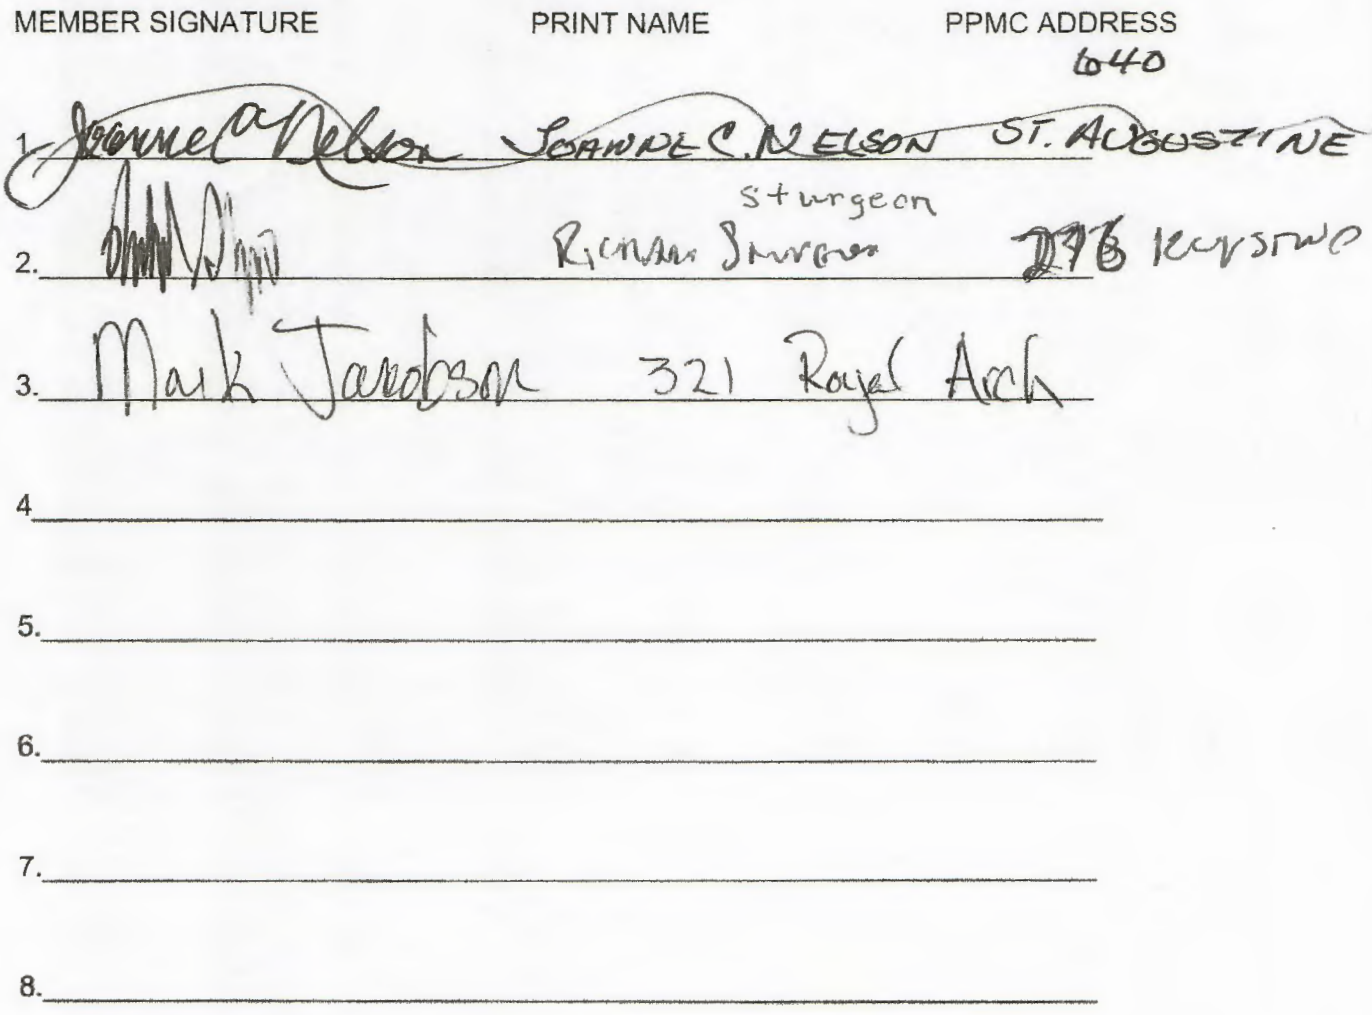 MEMBER SIGNATURE PRINT NAME PPMC ADDRESS
640
1. Joanne C Nelson JOANNE C. NELSON ST. AUGUSTINE
sturgeon
2. Richard Sturgeon
3. Mark Jacobson 321 Royal Arch
4
5.
6.
7.
8.